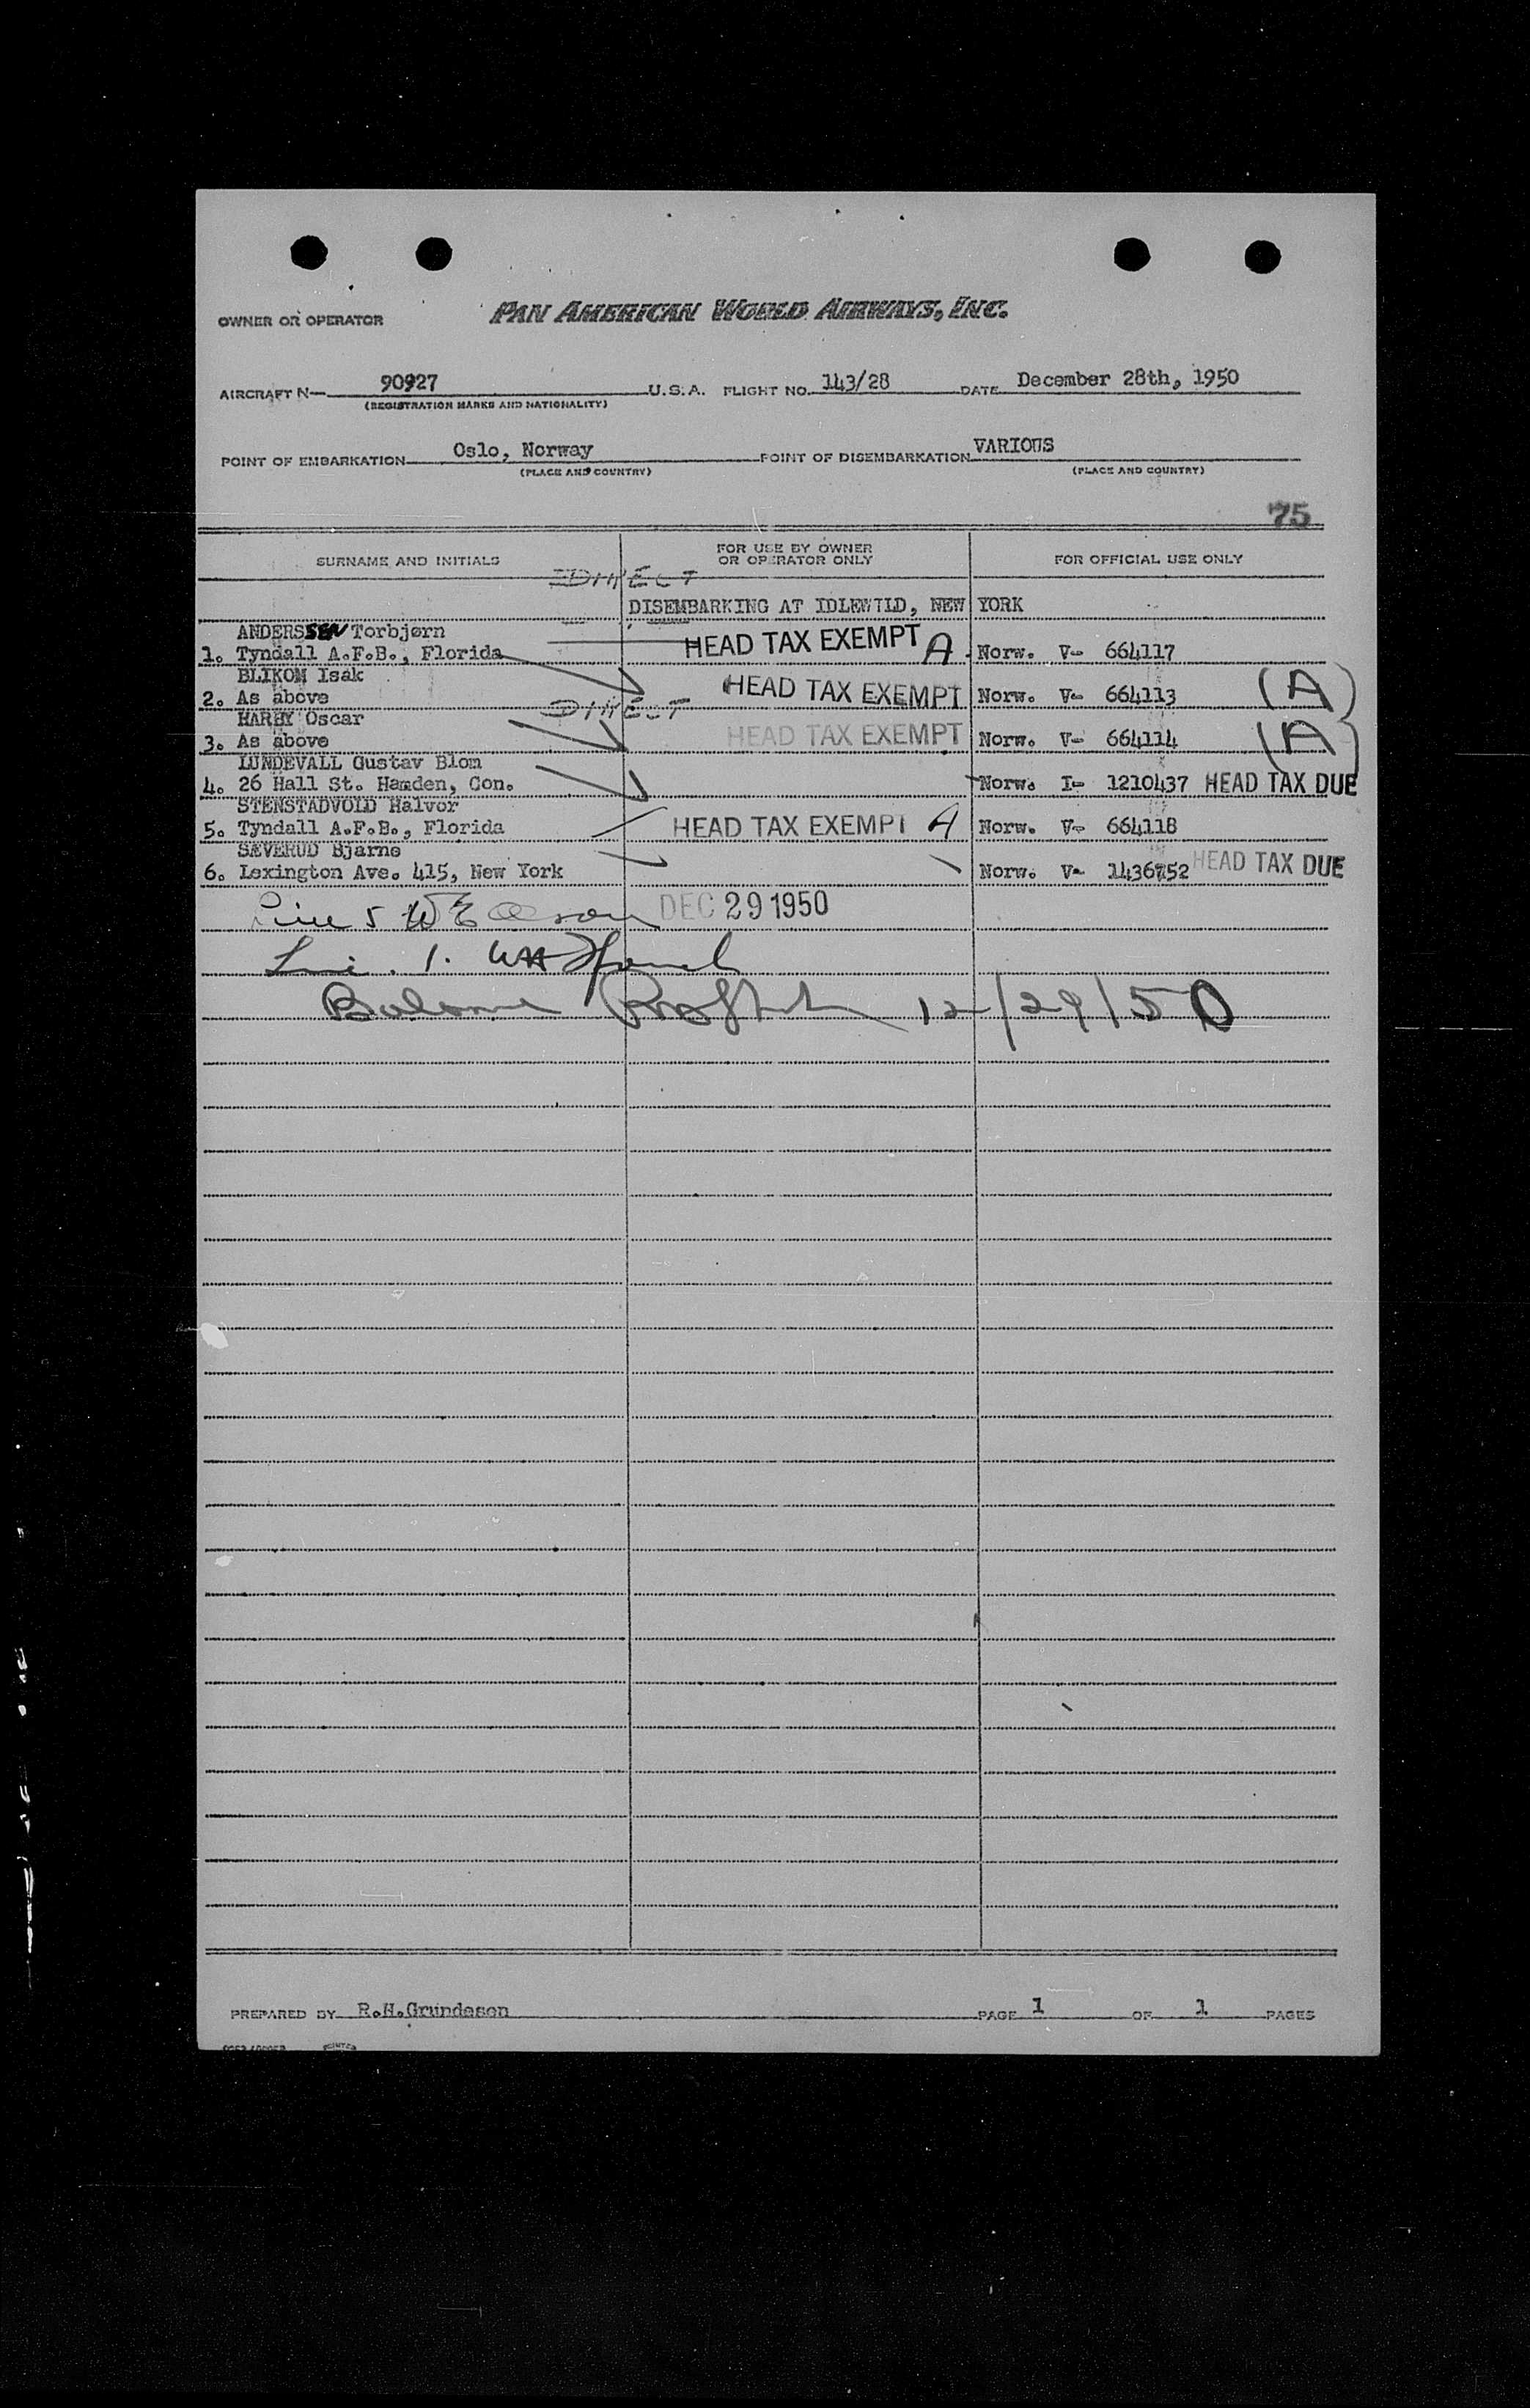 OWNER OR OPERATOR PAN AMERICAN WORLD AIRWAYS, INC.
AIRCRAFT N— 90927 U.S.A. FLIGHT NO. 143/28 DATE December 28th, 1950
(REGISTRATION MARKS AND NATIONALITY)
POINT OF EMBARKATION Oslo, Norway POINT OF DISEMBARKATION VARIOUS
(PLACE AND COUNTRY) (PLACE AND COUNTRY)
75
SURNAME AND INITIALS FOR USE BY OWNER OR OPERATOR ONLY FOR OFFICIAL USE ONLY
DIRECT
DISEMBARKING AT IDLEWILD, NEW YORK
ANDERSSEN Torbjørn
1. Tyndall A.F.B., Florida HEAD TAX EXEMPT A Norw. V- 664117
BLIKOM Isak
2. As above HEAD TAX EXEMPT Norw. V- 664113 (A)
DIRECT
HARBY Oscar
3. As above HEAD TAX EXEMPT Norw. V- 664114 (A)
LUNDEVALL Gustav Blom
4. 26 Hall St. Hamden, Con. Norw. I- 1210437 HEAD TAX DUE
STENSTADVOLD Halvor
5. Tyndall A.F.B., Florida HEAD TAX EXEMPT A Norw. V- 664118
SÆVERUD Bjarne
6. Lexington Ave. 415, New York Norw. V- 1436752 HEAD TAX DUE
Line 5 DEC 29 1950
Line 1.
Balance 12/29/50
PREPARED BY R.H.Grundeson PAGE 1 OF 1 PAGES